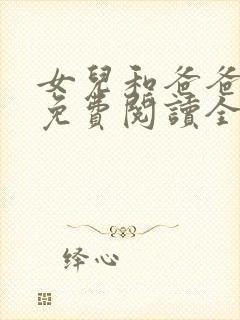 女兒和爸爸
免費閱讀全
绎心